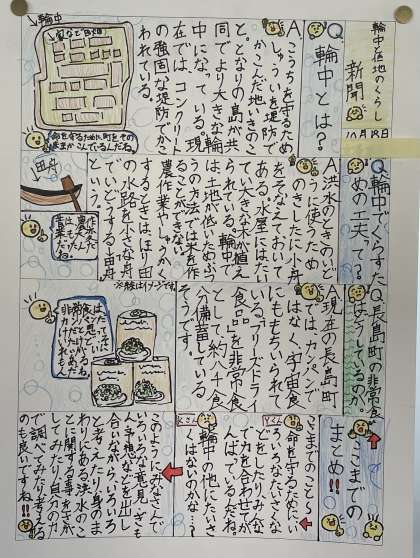 輪中低地のくらし
新聞
Q、輪中とは？
A、
こうずいを守るため
かこんだ地いきのこ
と。となりの島が共
同でより大きな輪
中になっている。現
在では、コンクリート
の強固な堤防でか
われている。
輪中
家など
命を守るために町をその
ままかこんでいるんだね。
Q、輪中でくらすた
めの工夫て？
A、洪水のときのひじ
ょうに使うため
のきしたに小舟
をそなえておいて
ある。水屋にはたい
てい大きな木が植え
られている。輪中で
は、土地が低いためふつ
うの方法では米を作
ることができない。
農作業やしゅうかく
するときはほり田
の水路を小さな舟
でいどうする。田舟
という。
田舟
※絵はイメージです。
Q、長島町の非常食
はどうしているのか。
A、現在の長島町
では、カンパンで
はなく、宇宙食
にももちいられて
いる、フリーズドライ
食品を非常食
として、約八千食
分備蓄している
そうです。
ここまでの
まとめ!!
ここまでのこと〜
命を守るためにい
ろいろなたいさくな
どをしたりみんな
で力を合わせてが
んばっているんだね。
輪中の他にたいさ
くはないのかな…？
このようにみんなで
いろいろな意見、ぎも
ん、予想などを出し
合いながら、いろいろ
と考えたり身のま
わりにある洪水のこ
とに関する事をさが
してみたり自分の力
で調べてみたり考える
のも良いですね!!